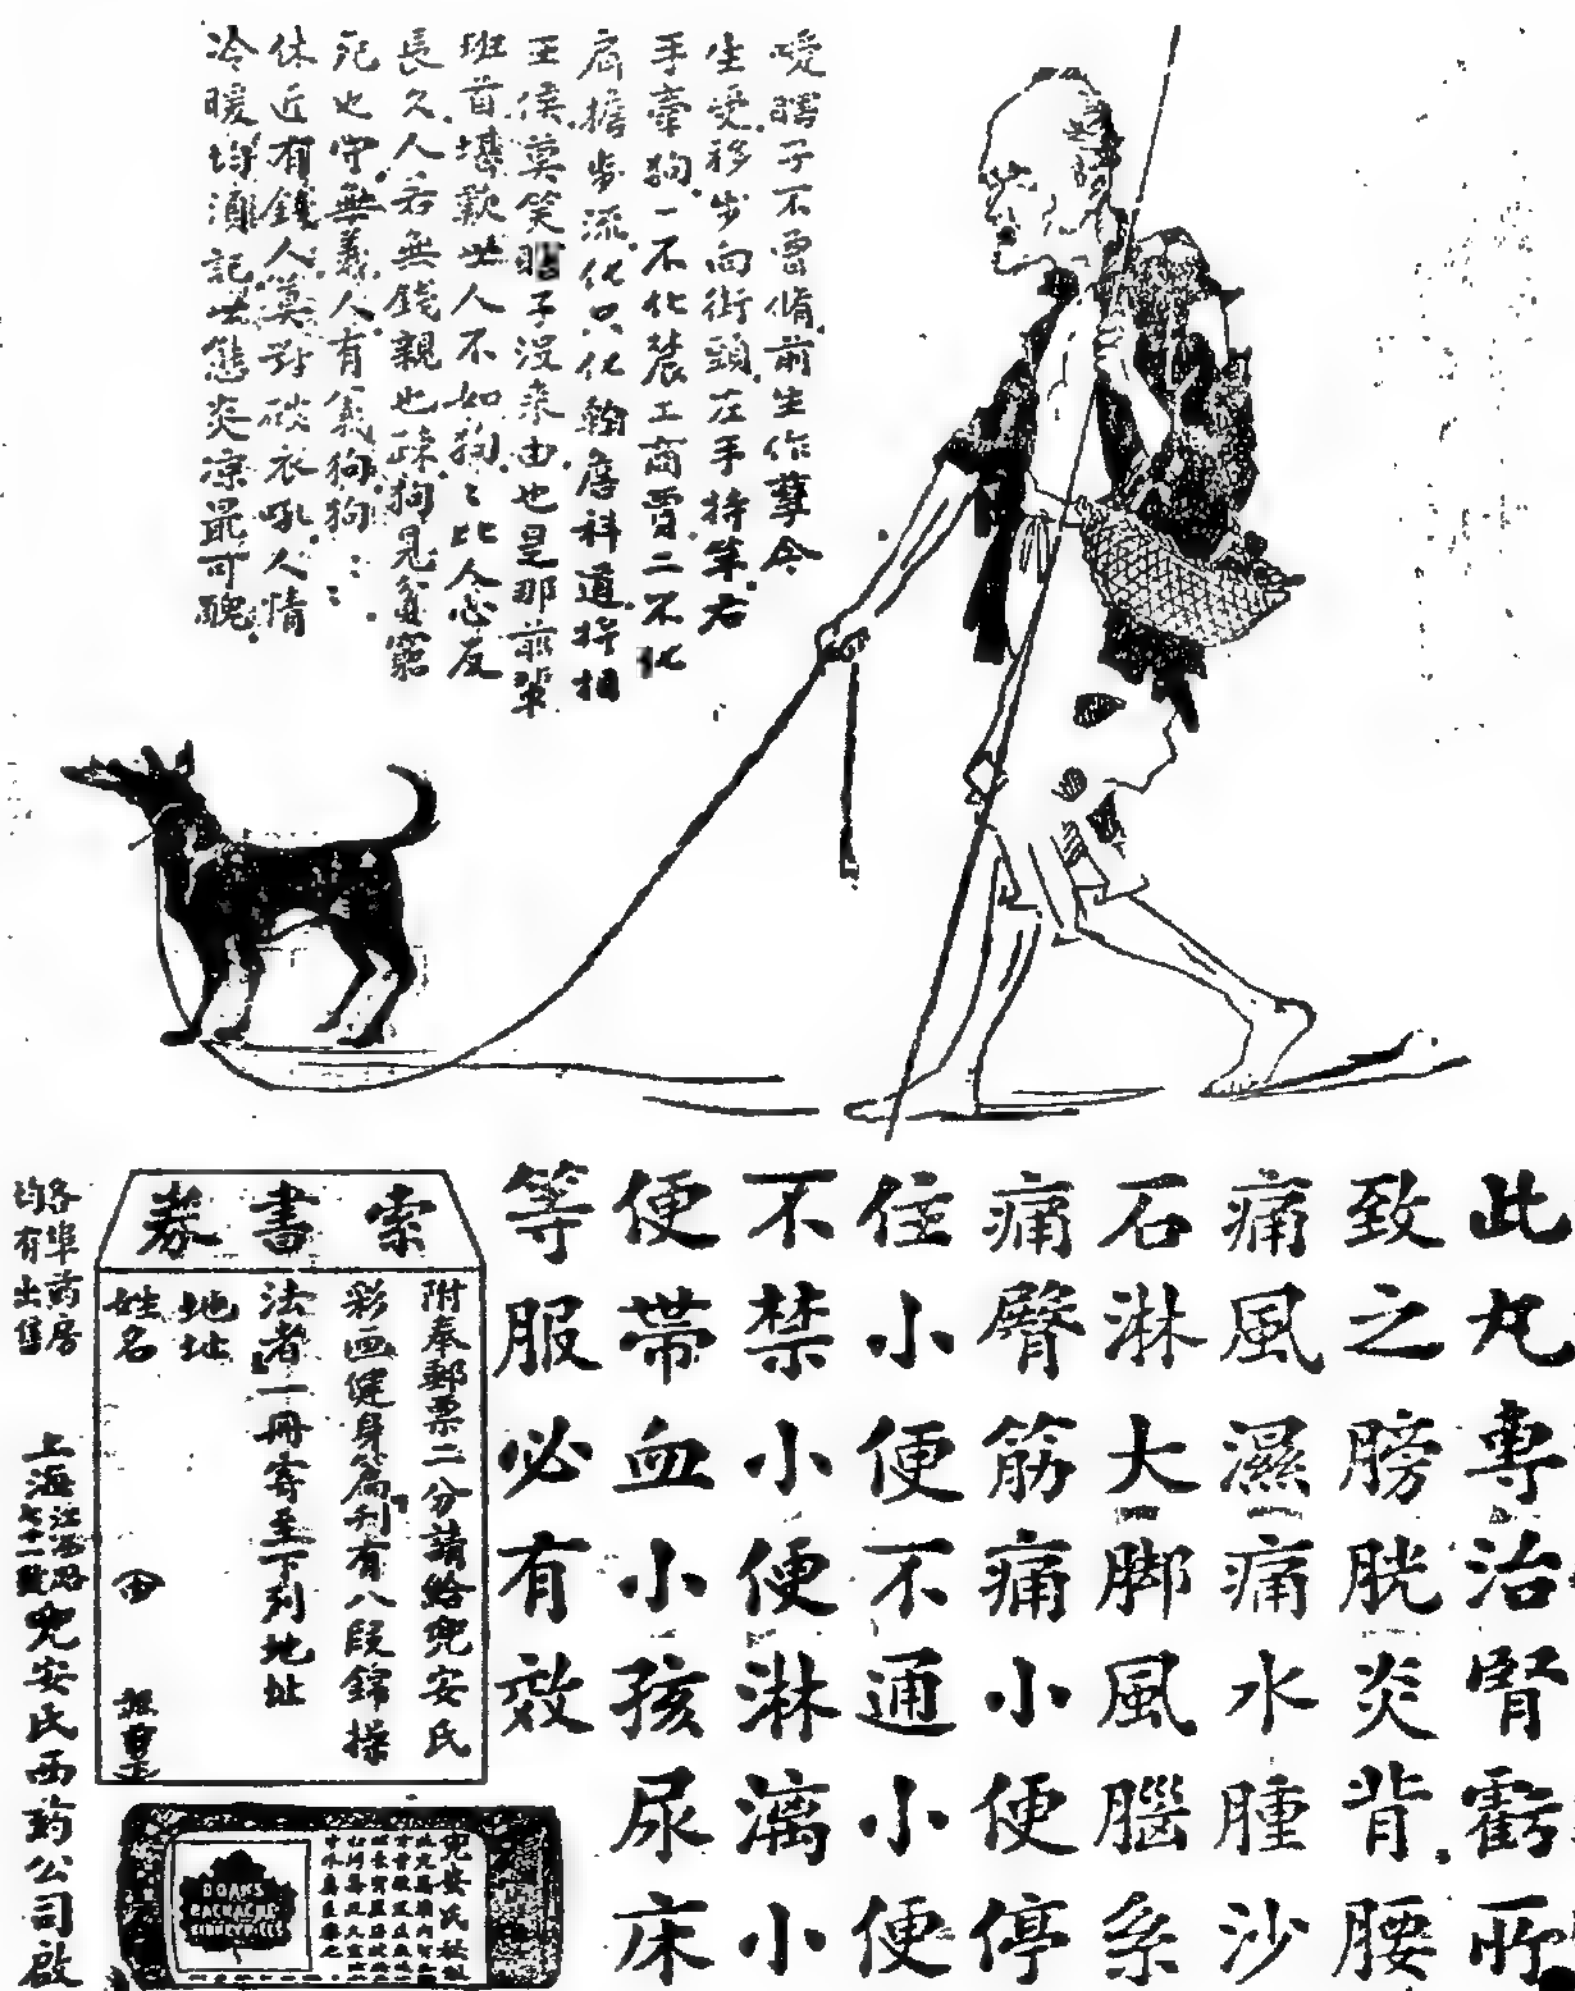 嘆瞎子不曾脩前生作孽今
生受移步向街頭左手持竿右
手牽狗一不化農工商賈二不化
肩擔步流化只化翰詹科道将相
王侯莫笑瞎子没来由也是那前輩
班首堪歎世人不如狗狗比人心反
長久人若無錢親也疎狗見貧窮
死也守無義人有義狗狗
休近有錢人莫對破衣吼人情
冷暖均嘗記世態炎凉最可醜
此丸専治腎虧所
致之膀胱炎背腰
痛風濕痛水腫沙
石淋大脚風腦系
痛臀筋痛小便停
住小便不通小便
不禁小便淋漓小
便帶血小孩尿床
等服必有效
索書券
附奉郵票二分請給兜安氏
彩画健身篇刋有八段錦操
法者一冊寄至下列地址
地址
姓名
各埠葯房
均有出售
上海江西路
七十一號
兜安氏西葯公司啟
DOAN'S
BACKACHE
KIDNEY PILLS